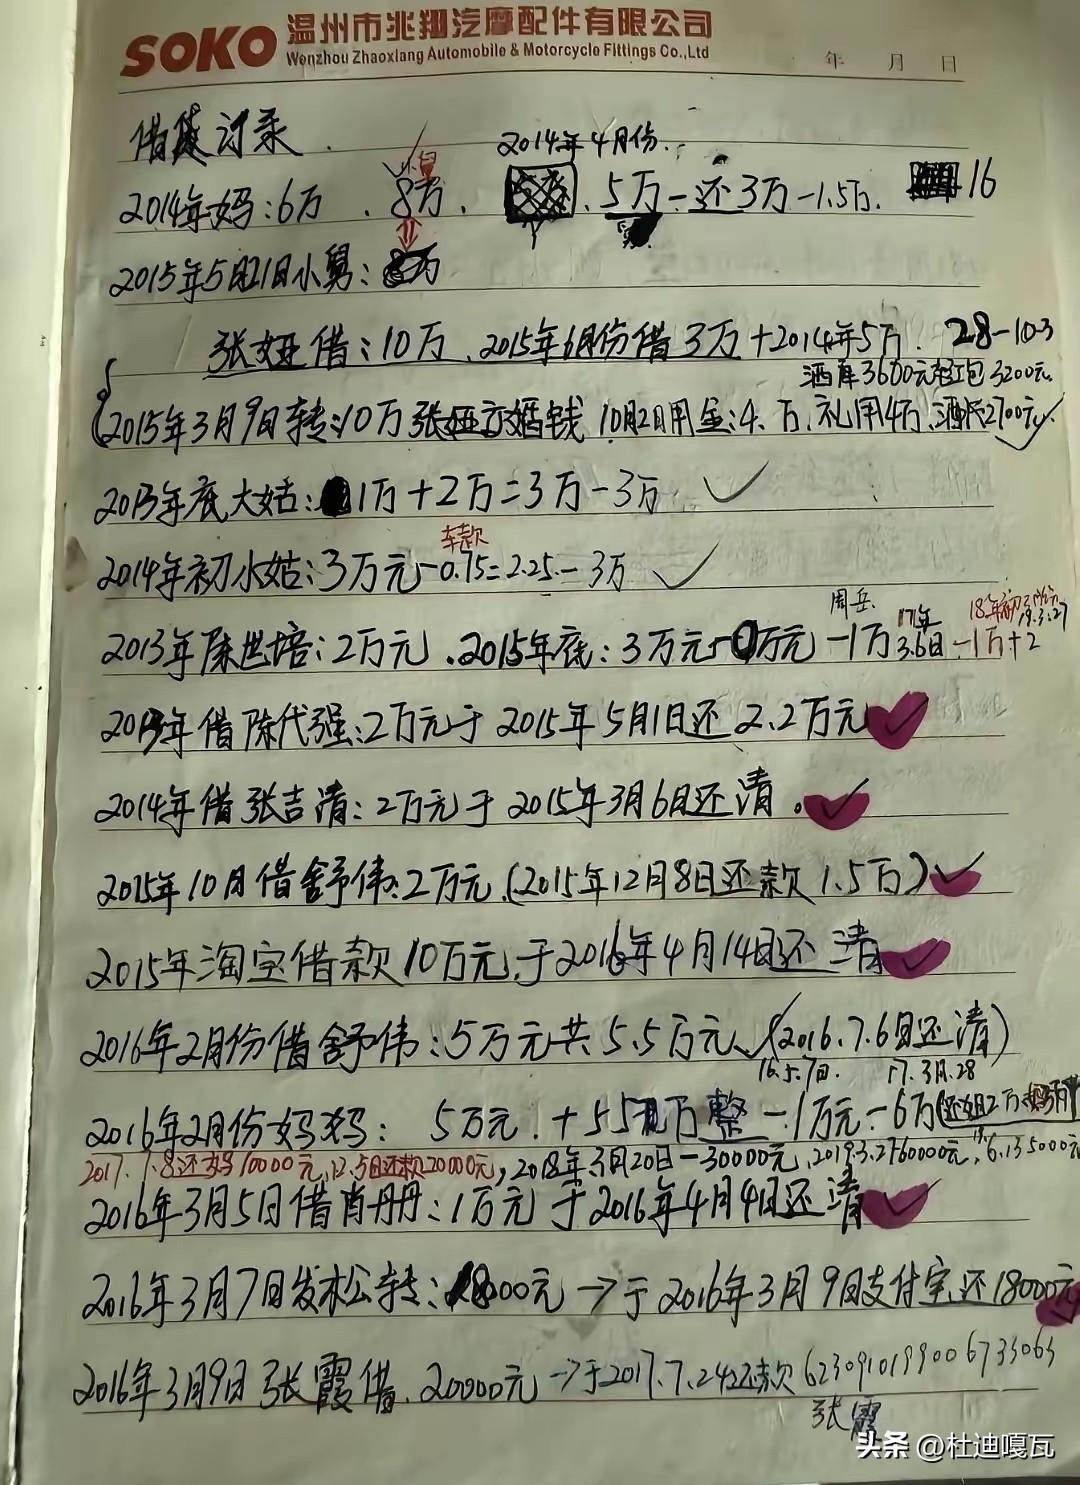 SOKO 温州市兆翔汽摩配件有限公司
Wenzhou Zhaoxiang Automobile & Motorcycle Fittings Co.,Ltd
年 月 日
借贷订录.
2014年4月份.
2014年妈:6万 . 8万. . 5万-还3万-1.5万. 16
2015年5月21日小舅:
张娅借:10万.2015年6月份借3万+2014年5万. 28-10-3
酒席3600元 红包3200元.
2015年3月9日转:10万张娅 婚钱 10月2日用金:4.万.礼用4万.酒 2700元
2013年底大姑: 1万+2万=3万-3万 ✓
车款
2014年初小姑:3万元-0.75=2.25-3万 ✓
周岳. 17年 18年初 19.3.27
2013年陈世培:2万元.2015年底:3万元 万元-1万 3.6日-1万+2
2013年借陈代强:2万元于2015年5月1日还2.2万元 ✓
2014年借张吉清:2万元于2015年3月6日还清. ✓
2015年10月借舒伟:2万元.(2015年12月8日还款1.5万) ✓
2015年淘宝借款10万元.于2016年4月14日还清 ✓
2016年2月份借舒伟:5万元共5.5万元 ✓(2016.7.6日还清)
16.5.7日. 17.3月.28
2016年2月份妈妈: 5万元.+5 万整-1万元-6万(还姐2万
2017.7.8还妈10000元,12.5日还款20000元,2018年3月20日-30000元,2019.3.27 60000元, 6.13 5000元
2016年3月5日借肖丹丹:1万元于2016年4月4日还清 ✓
2016年3月7日发松转:18000元→于2016年3月9日支付宝还18000元
2016年3月9日张霞借.20000元→于2017.7.24还款 6230910199006733063
张霞
头条 @杜迪嘎瓦